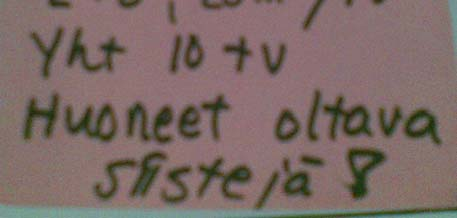 Yht 10 + v
Huoneet oltava
siistejä